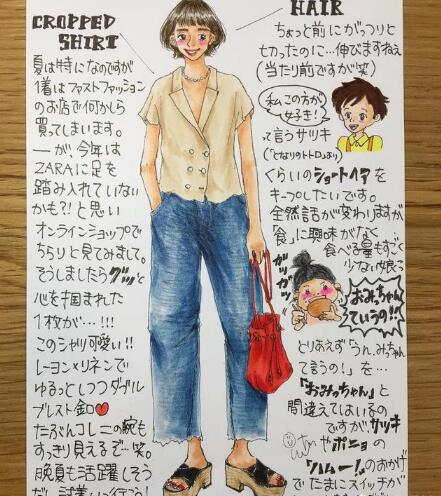 CROPPED
SHIRT
夏は特になのですが
1着はファストファッション
のお店で何かしら
買ってしまいます。
ーが、今年は
ZARAに足を
踏み入れていない
かも?!と思い
オンラインショップで
ちらりと見てみまして。
そうしましたらグッと
心を掴まれた
1枚が…!!!
このシャツ可愛い!!
レーヨン×リネンで
ゆるっとしつつダブル
ブレスト釦♥
たぶんコレ二の腕も
すっきり見えるぞ…笑。
晩夏も活躍しそう
HAIR
ちょっと前にがっつりと
切ったのに…伸びますねぇ
(当たり前ですが笑)
私この方が
好き!
って言うサツキ
(「となりのトトロ」より)
くらいのショートヘアを
キープしたいです。
全然話が変わりますが
「食」に興味がなく
食べる量もすごく
少ない娘っ
ガツガツ
おみちゃん
ていうの!!
とりあえず「うん、みちゃん
て言うの!」を…
「おみっちゃん」と
間違えてはいるの
ですが、サツキ
やポニョの
「ハムー!」のおかげ
で たまにスイッチが